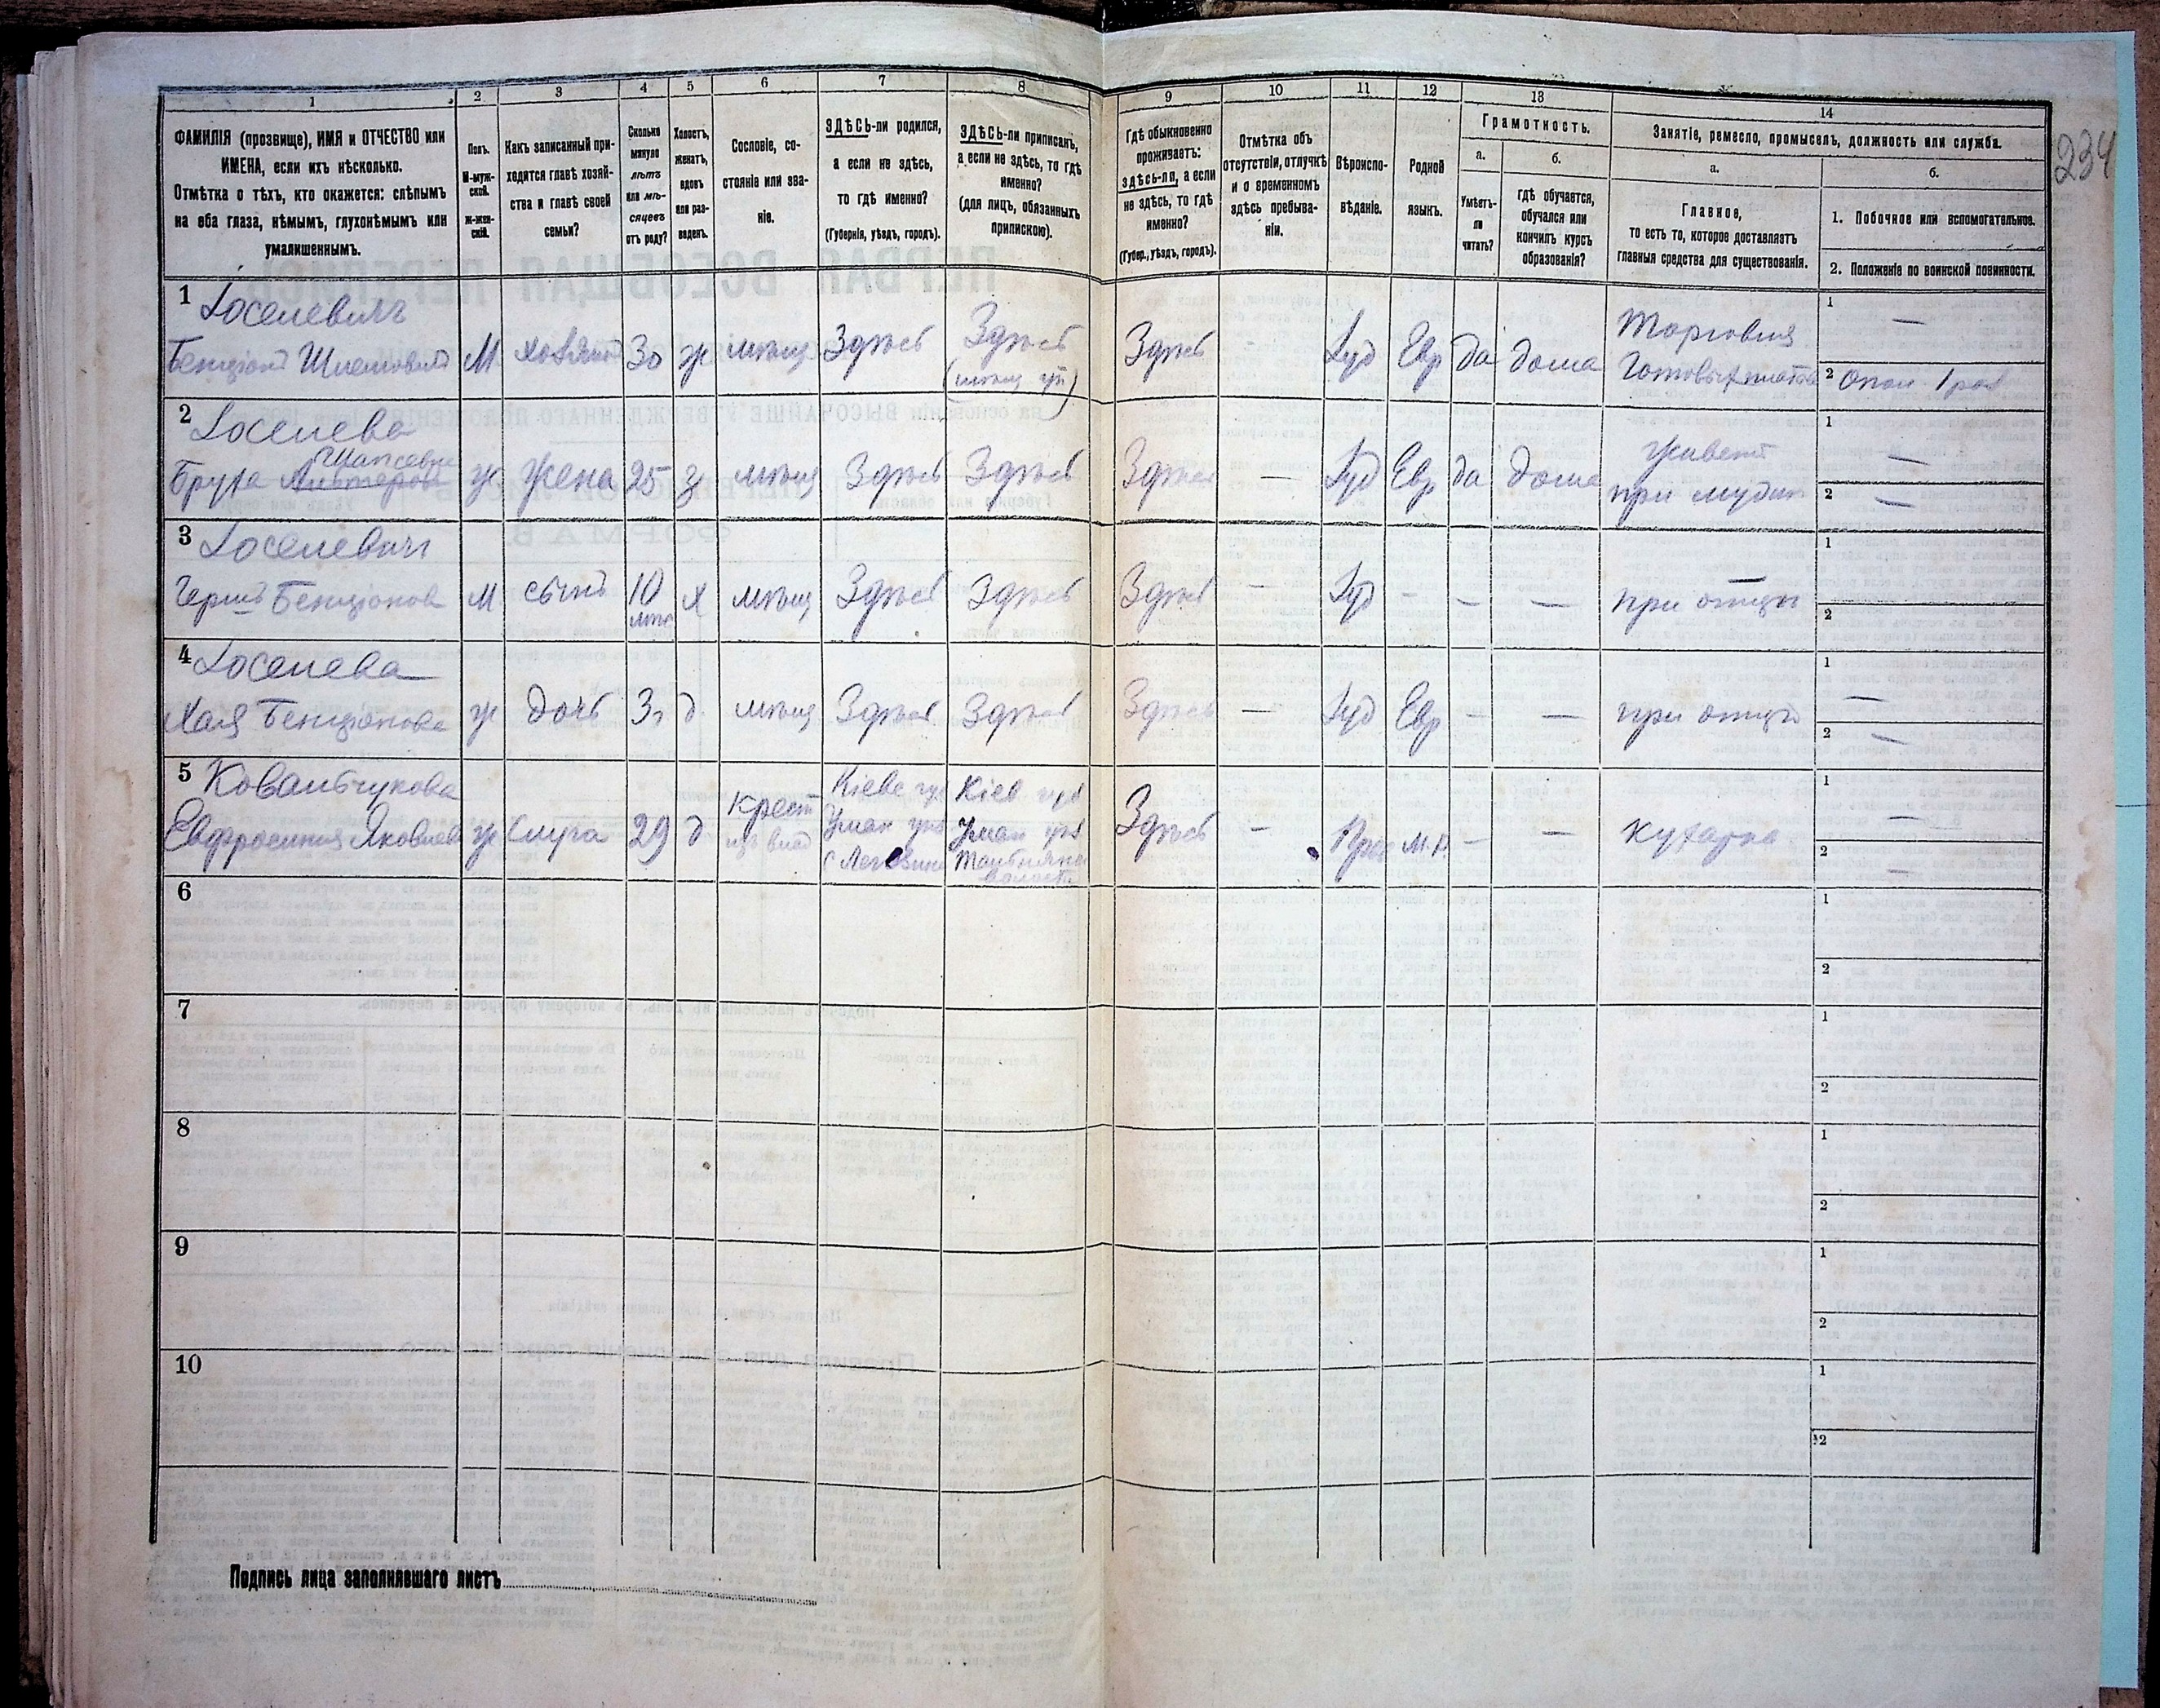 234
1 2 3 4 5 6 7 8 9 10 11 12 13 14
ФАМИЛІЯ (прозвище), ИМЯ и ОТЧЕСТВО или
ИМЕНА, если ихъ нѣсколько.
Отмѣтка о тѣхъ, кто окажется: слѣпымъ
на оба глаза, нѣмымъ, глухонѣмымъ или
умалишеннымъ.
Полъ.
М-муж-
ской.
Ж-жен-
скій.
Какъ записанный при-
ходится главѣ хозяй-
ства и главѣ своей
семьи?
Сколько
минуло
лѣтъ
или мѣ-
сяцевъ
отъ роду?
Холостъ,
женатъ,
вдовъ
или раз-
веденъ.
Сословіе, со-
стояніе или зва-
ніе.
ЗДѢСЬ-ли родился,
а если не здѣсь,
то гдѣ именно?
(Губернія, уѣздъ, городъ).
ЗДѢСЬ-ли приписанъ,
а если не здѣсь, то гдѣ
именно?
(для лицъ, обязанныхъ
припискою).
Гдѣ обыкновенно
проживаетъ:
здѣсь-ли, а если
не здѣсь, то гдѣ
именно?
(Губер., уѣздъ, городъ).
Отмѣтка объ
отсутствіи, отлучкѣ
и о временномъ
здѣсь пребыва-
ніи.
Вѣроиспо-
вѣданіе.
Родной
языкъ.
Грамотность.
а.
Умѣетъ-
ли
читать?
б.
Гдѣ обучается,
обучался или
кончилъ курсъ
образованія?
Занятіе, ремесло, промыселъ, должность или служба.
а.
Главное,
то есть то, которое доставляетъ
главныя средства для существованія.
б.
1. Побочное или вспомогательное.
2. Положеніе по воинской повинности.
1 Іоселевичъ
Бенціонъ Шлемовичъ М хозяинъ 30 ж мѣщ Здѣсь Здѣсь
Здѣсь - Іуд Евр да дома
Торговля
1 —
2 Опол 1 раз
2 Іоселева
Шапсевна
Бруха ж жена 25 з мѣщ Здѣсь Здѣсь
Здѣсь — Іуд Евр да дома
Живетъ
при мужѣ
1 —
2 —
3 Іоселевичъ
Гершъ Бенціонов М сынъ 10 х мѣщ Здѣсь Здѣсь
Здѣсь — Іуд - - —
при отцѣ
1
2
4 Іоселева
Хая Бенціонова ж дочь 3 д мѣщ Здѣсь Здѣсь
Здѣсь — Іуд Евр - —
при отцѣ
1 —
2 —
5 Ковальчукова
Евфросинія Яковлева ж слуга 29 д
Крест
Кіевс губ
Уман
Кіев губ
Уман
Здѣсь - М.Р. - —
кухарка
1 —
2 —
6
1
2
7
1
2
8
1
2
9
1
2
10
1
2
Подпись лица заполнявшаго листъ